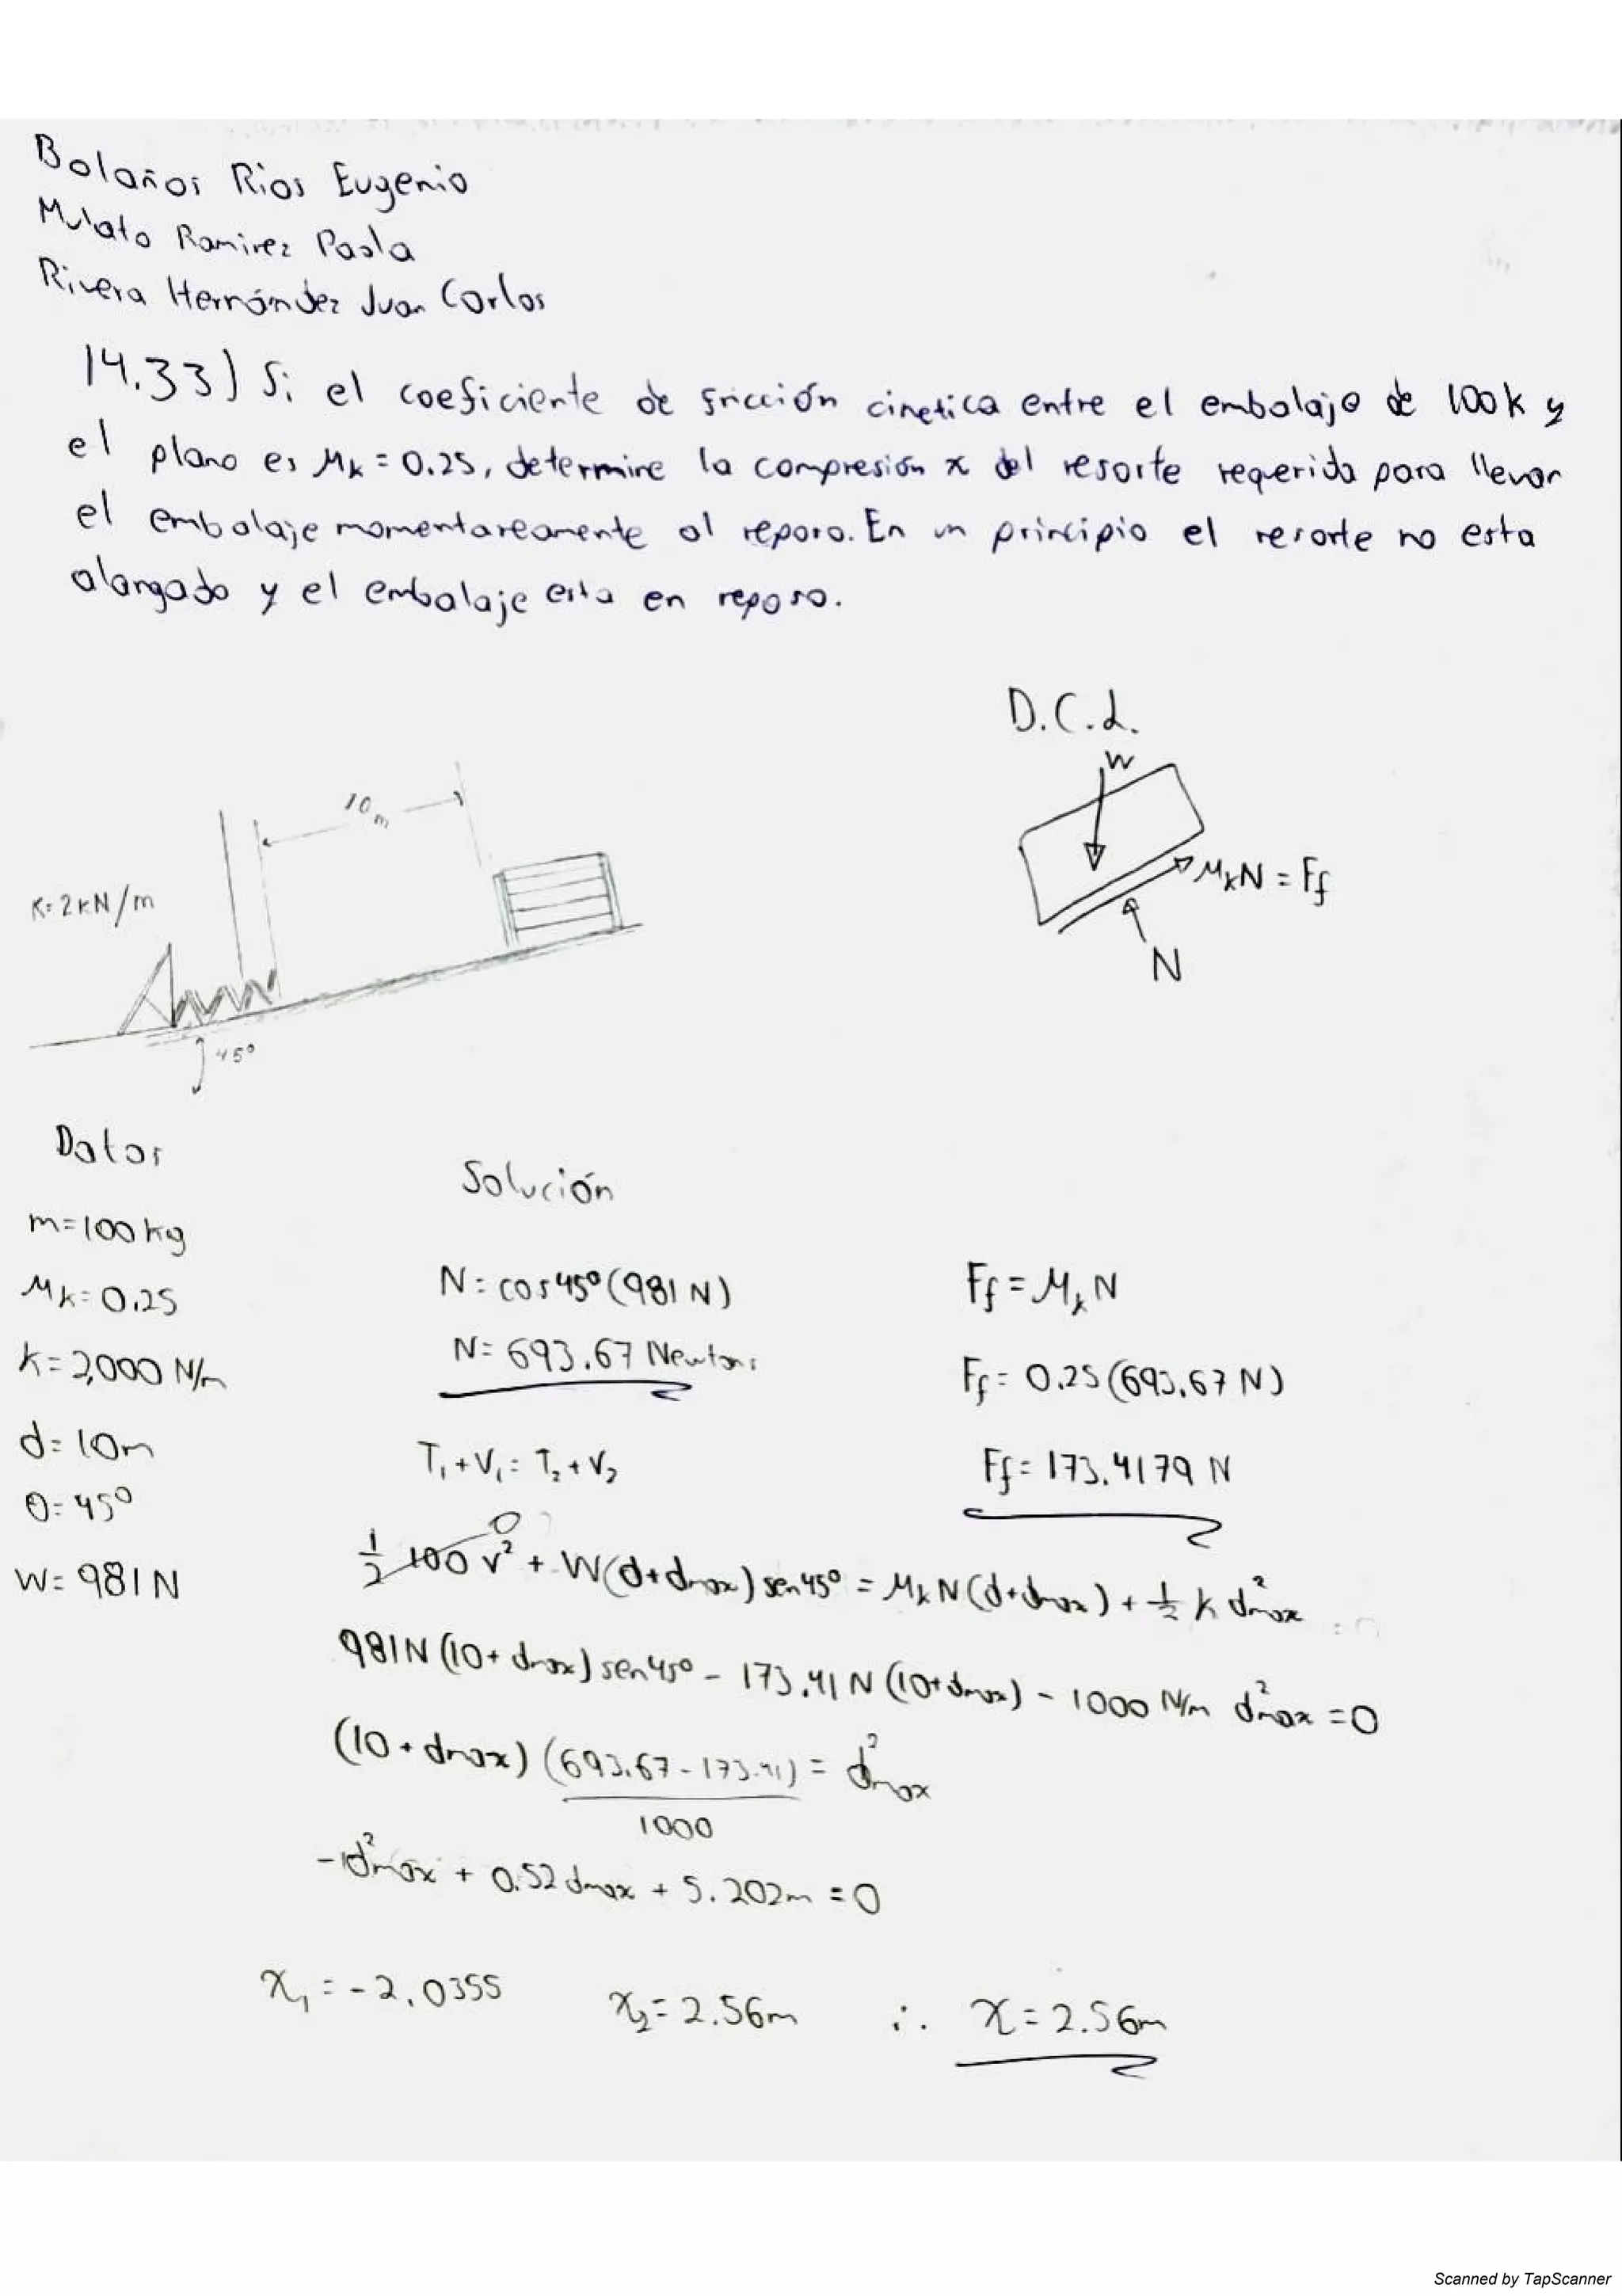 Bolaños Rios Eugenio
Mulato Ramirez Paola
Rivera Hernández Juan Carlos
14.33) Si el coeficiente de fricción cinetica entre el embalaje de 100k y
el plano es μk = 0.25, determine la compresión x del resorte requerida para llevar
el embalaje momentareamente al reposo. En un principio el resorte no esta
alargado y el embalaje esta en reposo.
D.C.L.
W
10 m
K=2kN/m
μkN = Ff
N
45°
Datos
Solución
m=100kg
μk=0.25
N=cos45°(981 N)
Ff = μkN
N= 693.67 Newtons
K=2,000 N/m
Ff= 0.25(693.67 N)
d=10m
T₁+V₁= T₂+V₂
Ff= 173.4179 N
θ=45°
0
½ 100 v² + W(d+dmax) sen45° = μkN(d+dmax) + ½ k d²max
W= 981N
981N(10+dmax)sen45° - 173.41N(10+dmax) - 1000 N/m d²max =0
(10+dmax) (693.67-173.41) = d²max
1000
-1d²max + 0.52dmax + 5.202m =0
x₁= -2.0355
x₂=2.56m
∴ x=2.56m
Scanned by TapScanner